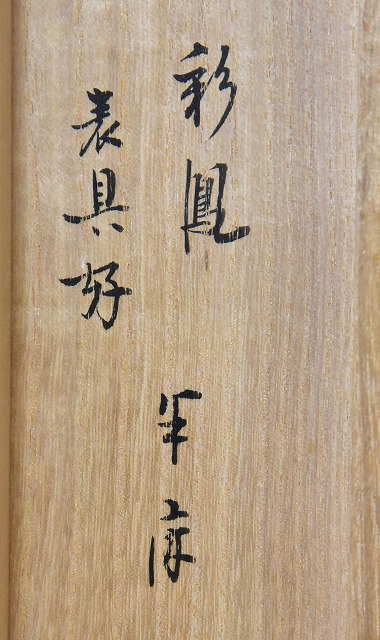 彩鳳 半床
表具好